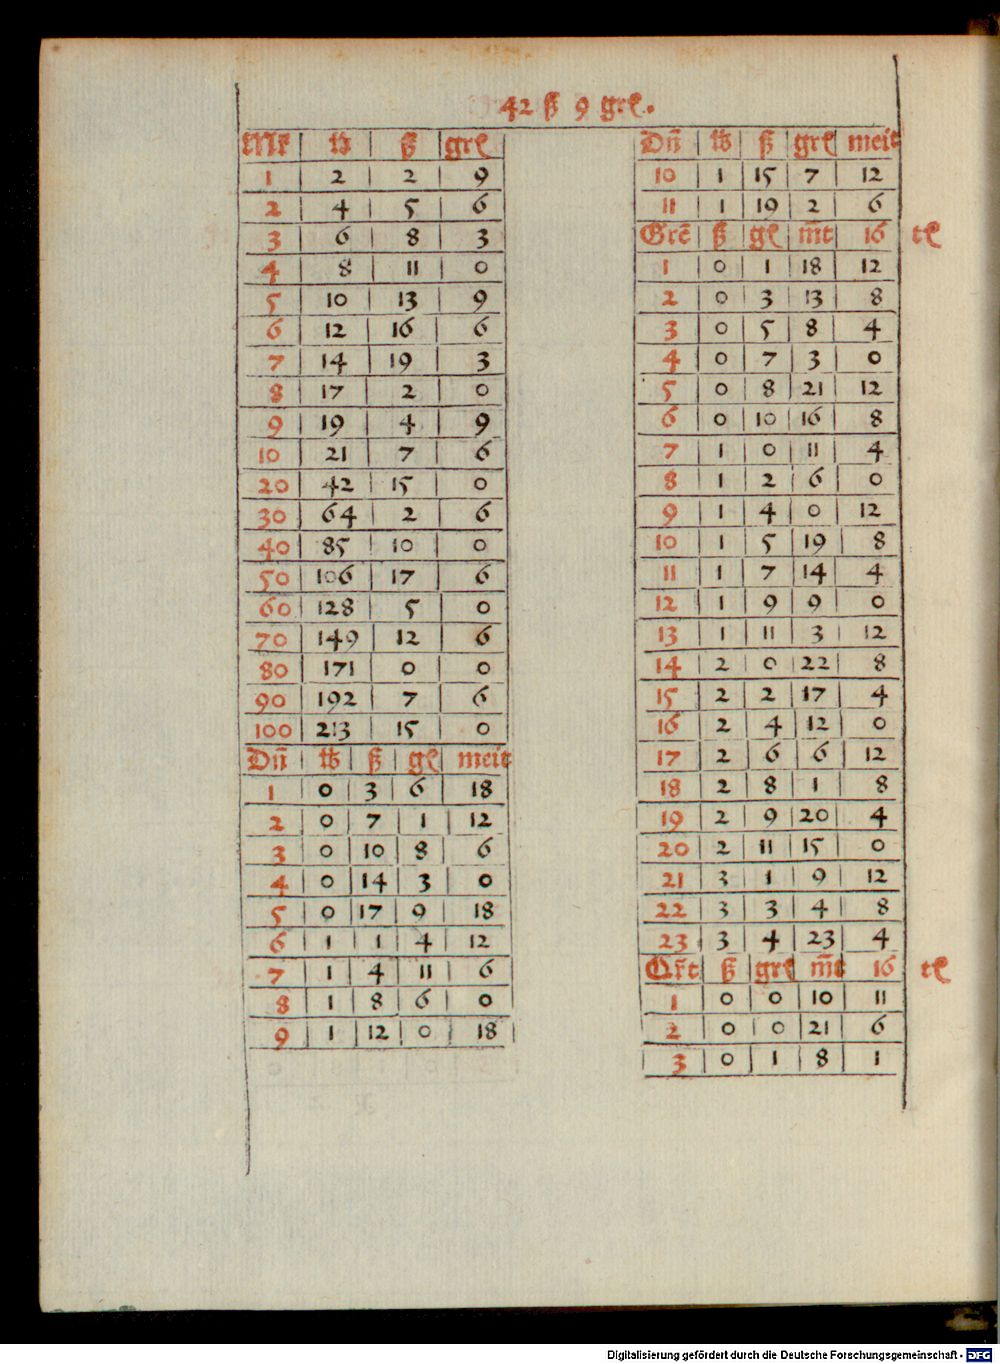 42 ß 9 grꝭ.
Mk lb ß grꝭ
1 2 2 9
2 4 5 6
3 6 8 3
4 8 11 0
5 10 13 9
6 12 16 6
7 14 19 3
8 17 2 0
9 19 4 9
10 21 7 6
20 42 15 0
30 64 2 6
40 85 10 0
50 106 17 6
60 128 5 0
70 149 12 6
80 171 0 0
90 192 7 6
100 213 15 0
Dñ lb ß gꝭ meit
1 0 3 6 18
2 0 7 1 12
3 0 10 8 6
4 0 14 3 0
5 0 17 9 18
6 1 1 4 12
7 1 4 11 6
8 1 8 6 0
9 1 12 0 18
Dñ lb ß grꝭ meit
10 1 15 7 12
11 1 19 2 6
Grē ß gꝭ m̄t 16 tꝭ
1 0 1 18 12
2 0 3 13 8
3 0 5 8 4
4 0 7 3 0
5 0 8 21 12
6 0 10 16 8
7 1 0 11 4
8 1 2 6 0
9 1 4 0 12
10 1 5 19 8
11 1 7 14 4
12 1 9 9 0
13 1 11 3 12
14 2 0 22 8
15 2 2 17 4
16 2 4 12 0
17 2 6 6 12
18 2 8 1 8
19 2 9 20 4
20 2 11 15 0
21 3 1 9 12
22 3 3 4 8
23 3 4 23 4
Qr̄t ß grꝭ m̄t 16 tꝭ
1 0 0 10 11
2 0 0 21 6
3 0 1 8 1
Digitalisierung gefördert durch die Deutsche Forschungsgemeinschaft - DFG